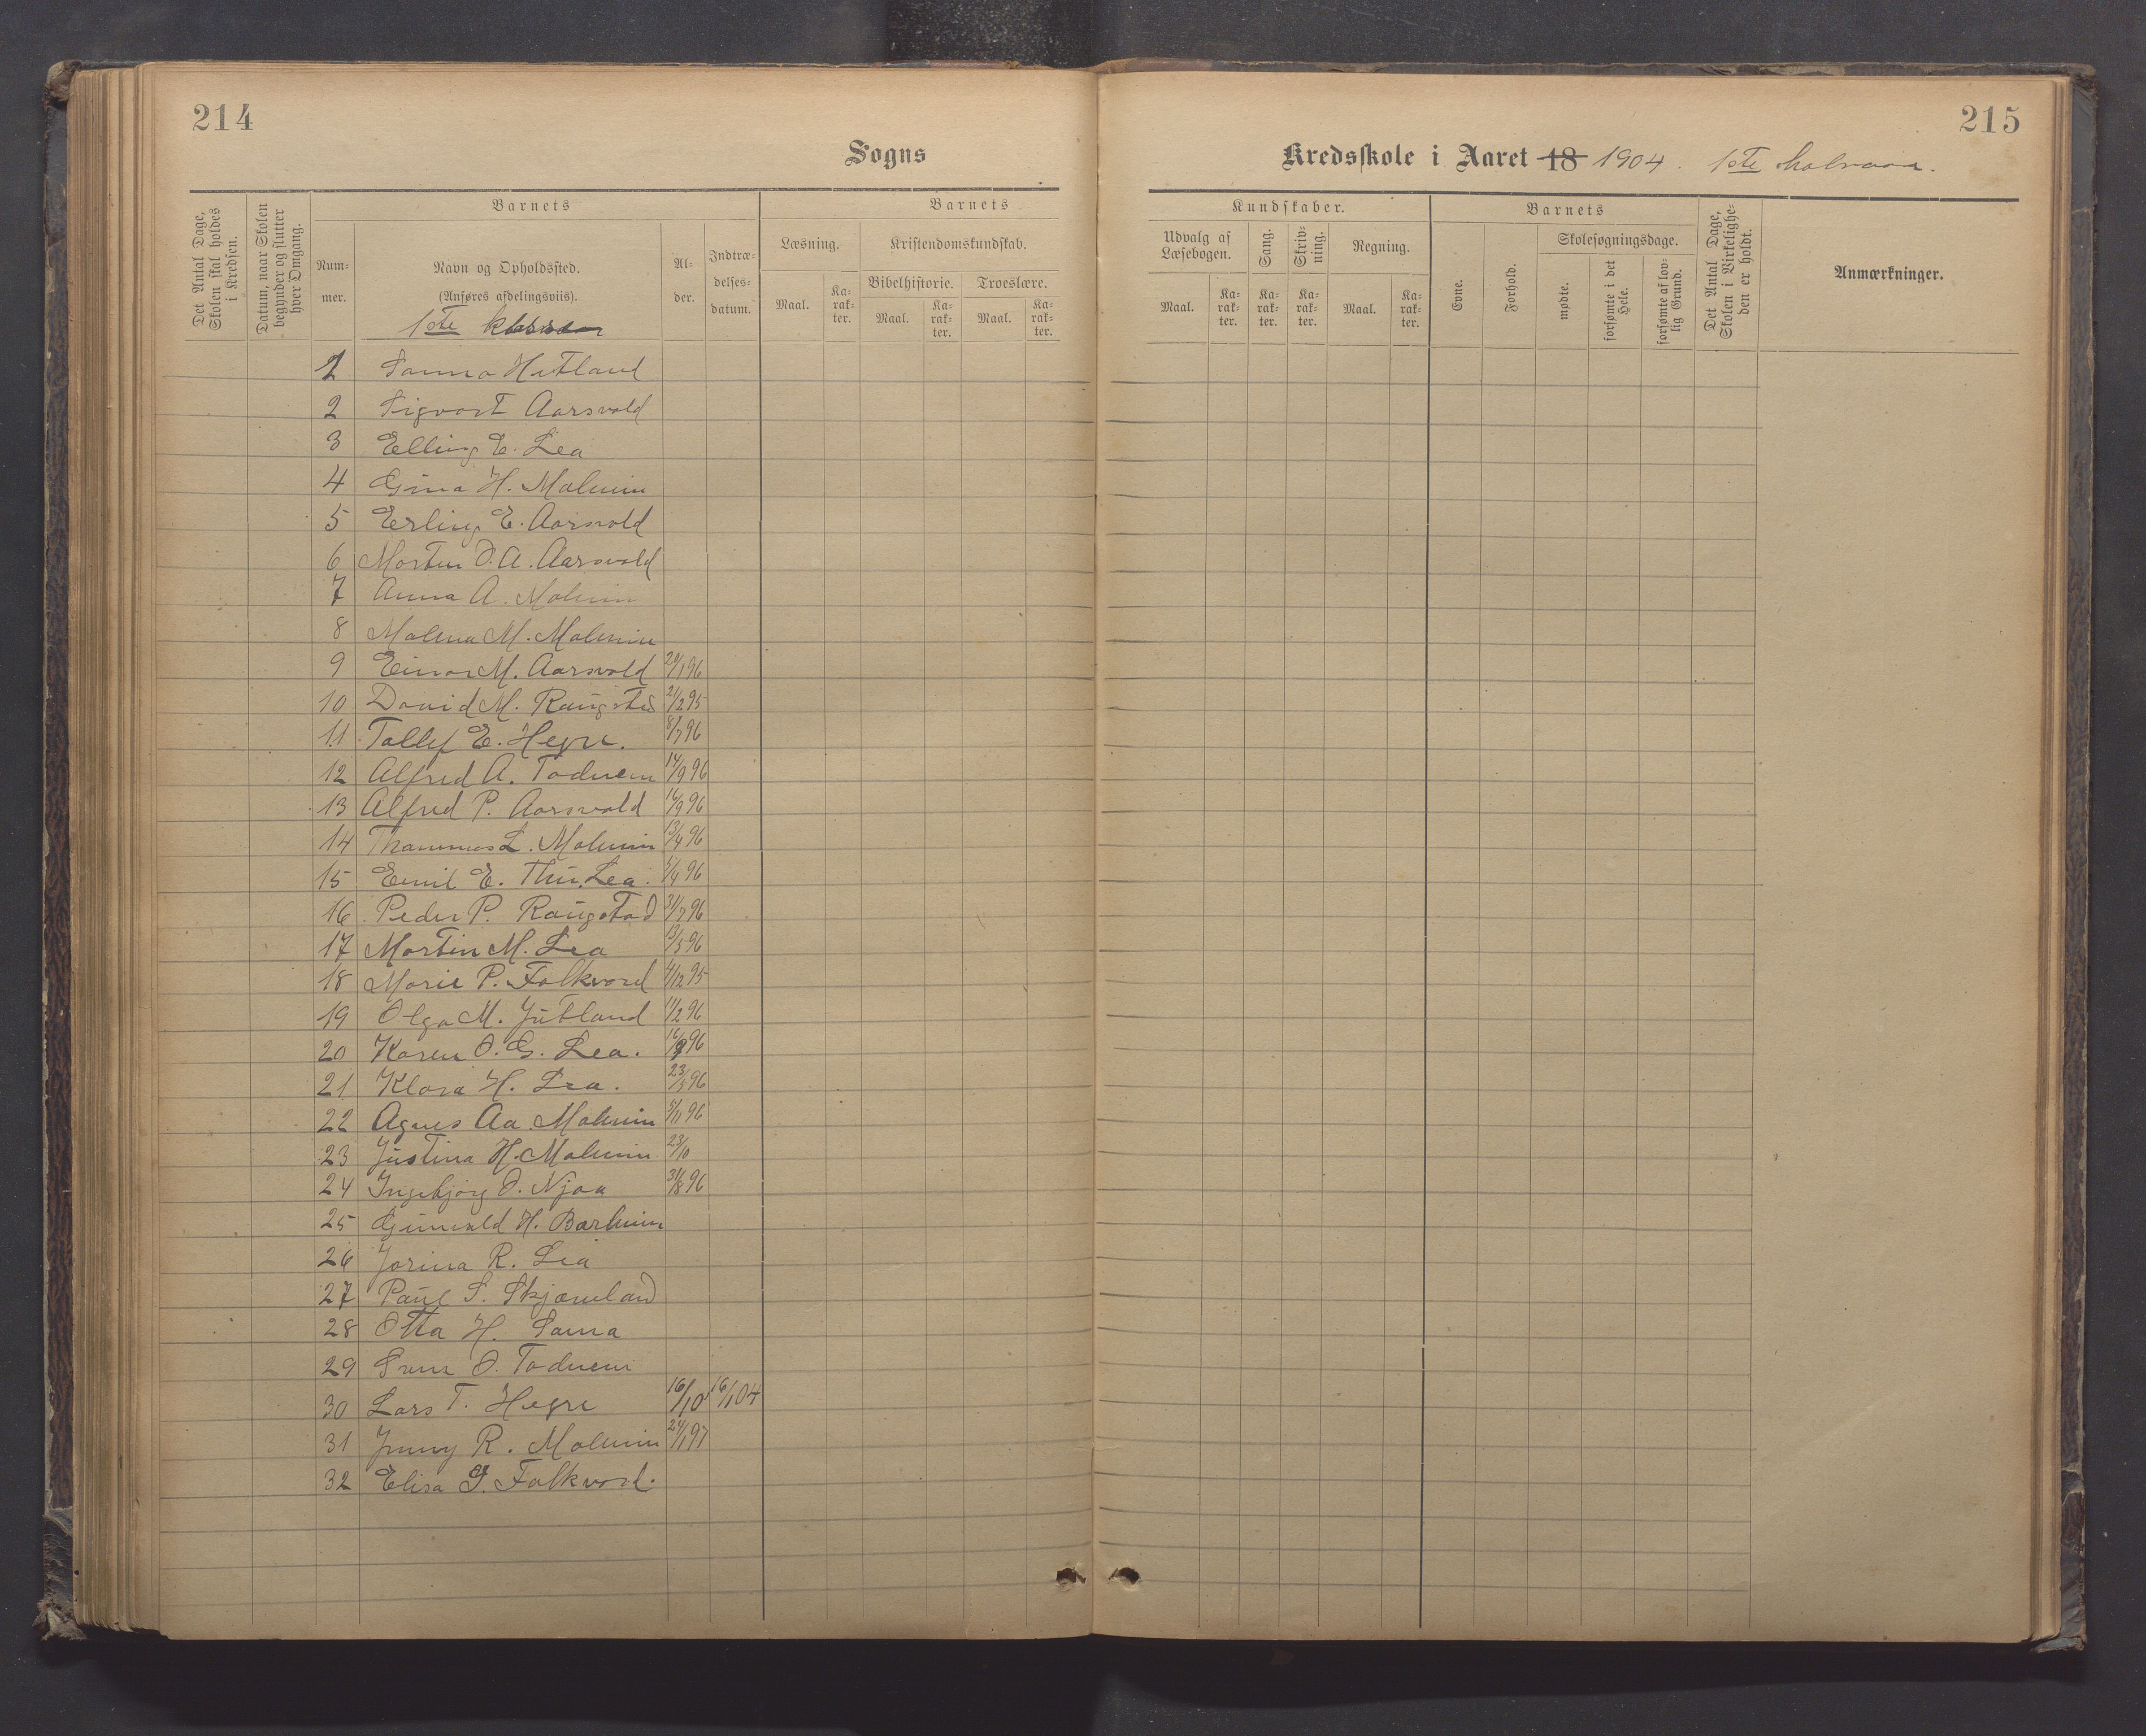 214
215
Sogns
Kredsskole i Aaret 18 1904. 1ste halvaar.
Det Antal Dage, Skolen skal holdes i Kredsen.
Datum, naar Skolen begynder og slutter hver Omgang.
Barnets
Nummer.
Navn og Opholdssted.
(Anføres afdelingsviis).
1ste klasse
Alder.
Indtrædelsesdatum.
Barnets
Læsning.
Kristendomskundskab.
Bibelhistorie.
Troeslære.
Maal.
Karakter.
Maal.
Karakter.
Maal.
Karakter.
Kundskaber.
Udvalg af Læsebogen.
Sang.
Skrivning.
Regning.
Maal.
Karakter.
Karakter.
Karakter.
Maal.
Karakter.
Barnets
Evne.
Forhold.
Skolesøgningsdage.
mødte.
forsømte i det Hele.
forsømte af lovlig Grund.
Det Antal Dage, Skolen i Virkeligheden er holdt.
Anmærkninger.
1 Sanna Hetland
2 Sigvart Aarsvold
3 Elling E. Lea
4 Gina H. Malmin
5 Erling E. Aarsvold
6 Morten O. A. Aarsvold
7 Anna A. Malmin
8 Malena M. Malmin
9 Einar M. Aarsvold 20/1 96
10 David M. Raugstad 21/2 95
11 Tollef E. Hegre. 8/7 96
12 Alfred A. Todnem 14/9 96
13 Alfred P. Aarsvold 16/9 96
14 Thommas L. Malmin 13/4 96
15 Emil E. Thu. Lea. 5/4 96
16 Peder P. Raugstad 31/7 96
17 Martin M. Lea 13/5 96
18 Marie P. Folkvord 4/12 95
19 Olga M. Jutland 11/2 96
20 Karen O. G. Lea. 16/9 96
21 Klara H. Lea. 23/5 96
22 Agnes Aa. Malmin 5/11 96
23 Justina H. Malmin 23/10
24 Ingebjørg O. Njaa 31/8 96
25 Gunvald H. Barheim
26 Jorina R. Lea
27 Paul S. Skjæveland
28 Otta H. Soma
29 Sven O. Todnem
30 Lars T. Hegre 16/10 16/1 04
31 Jenny R. Malmin 24/1 97
32 Elisa G. Folkvord.